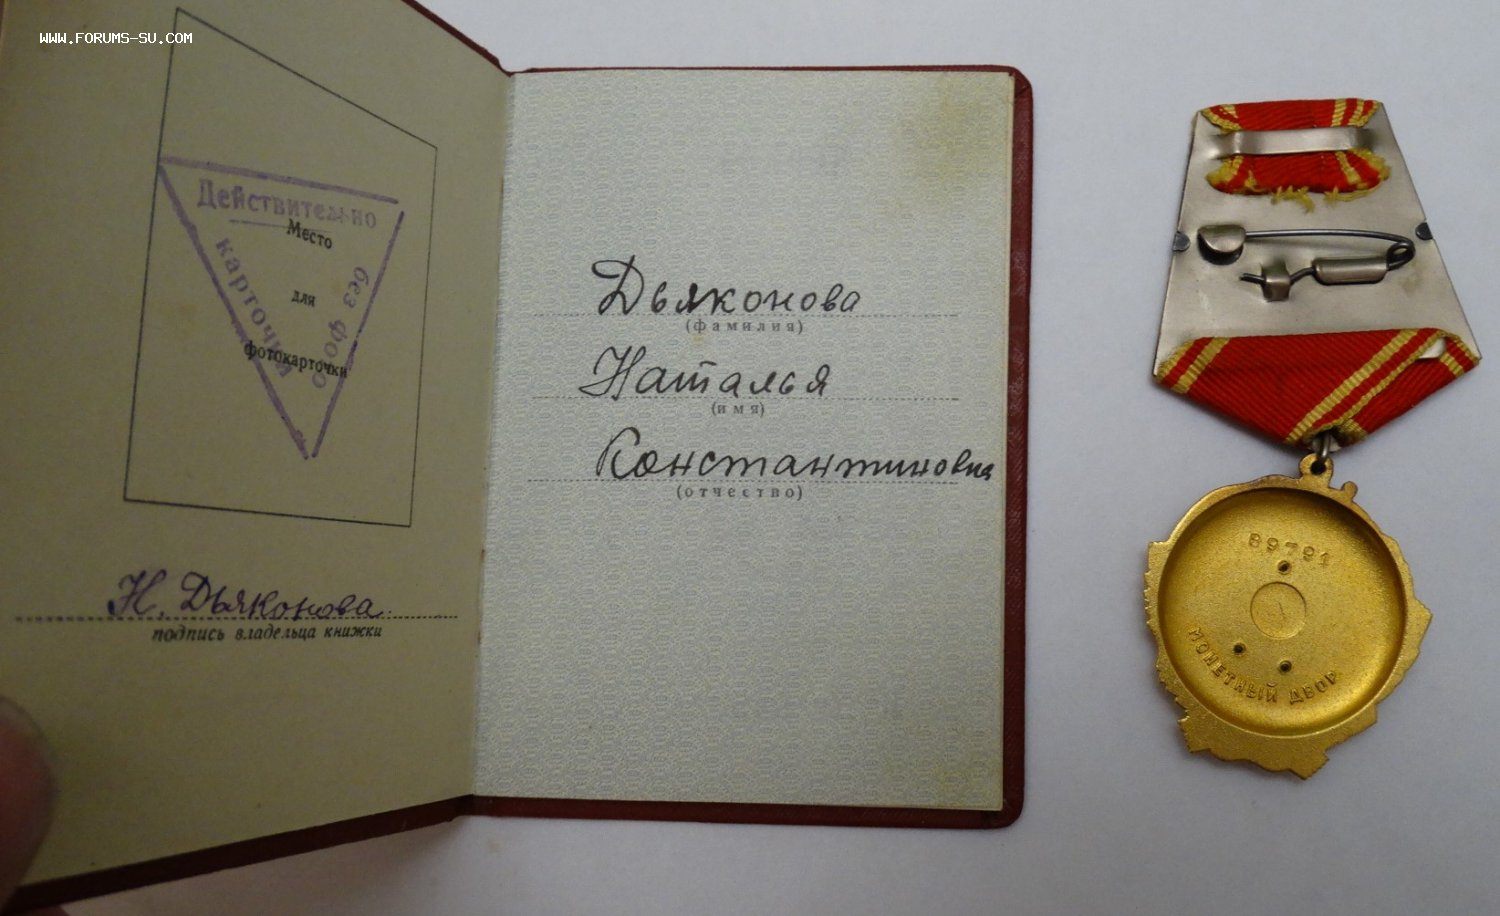 WWW.FORUMS-SU.COM
Действительно
без фото
карточки
Место
для
фотокарточки
Н. Дьяконова
подпись владельца книжки
Дьяконова
(фамилия)
Наталья
(имя)
Константиновна
(отчество)
89791
МОНЕТНЫЙ ДВОР